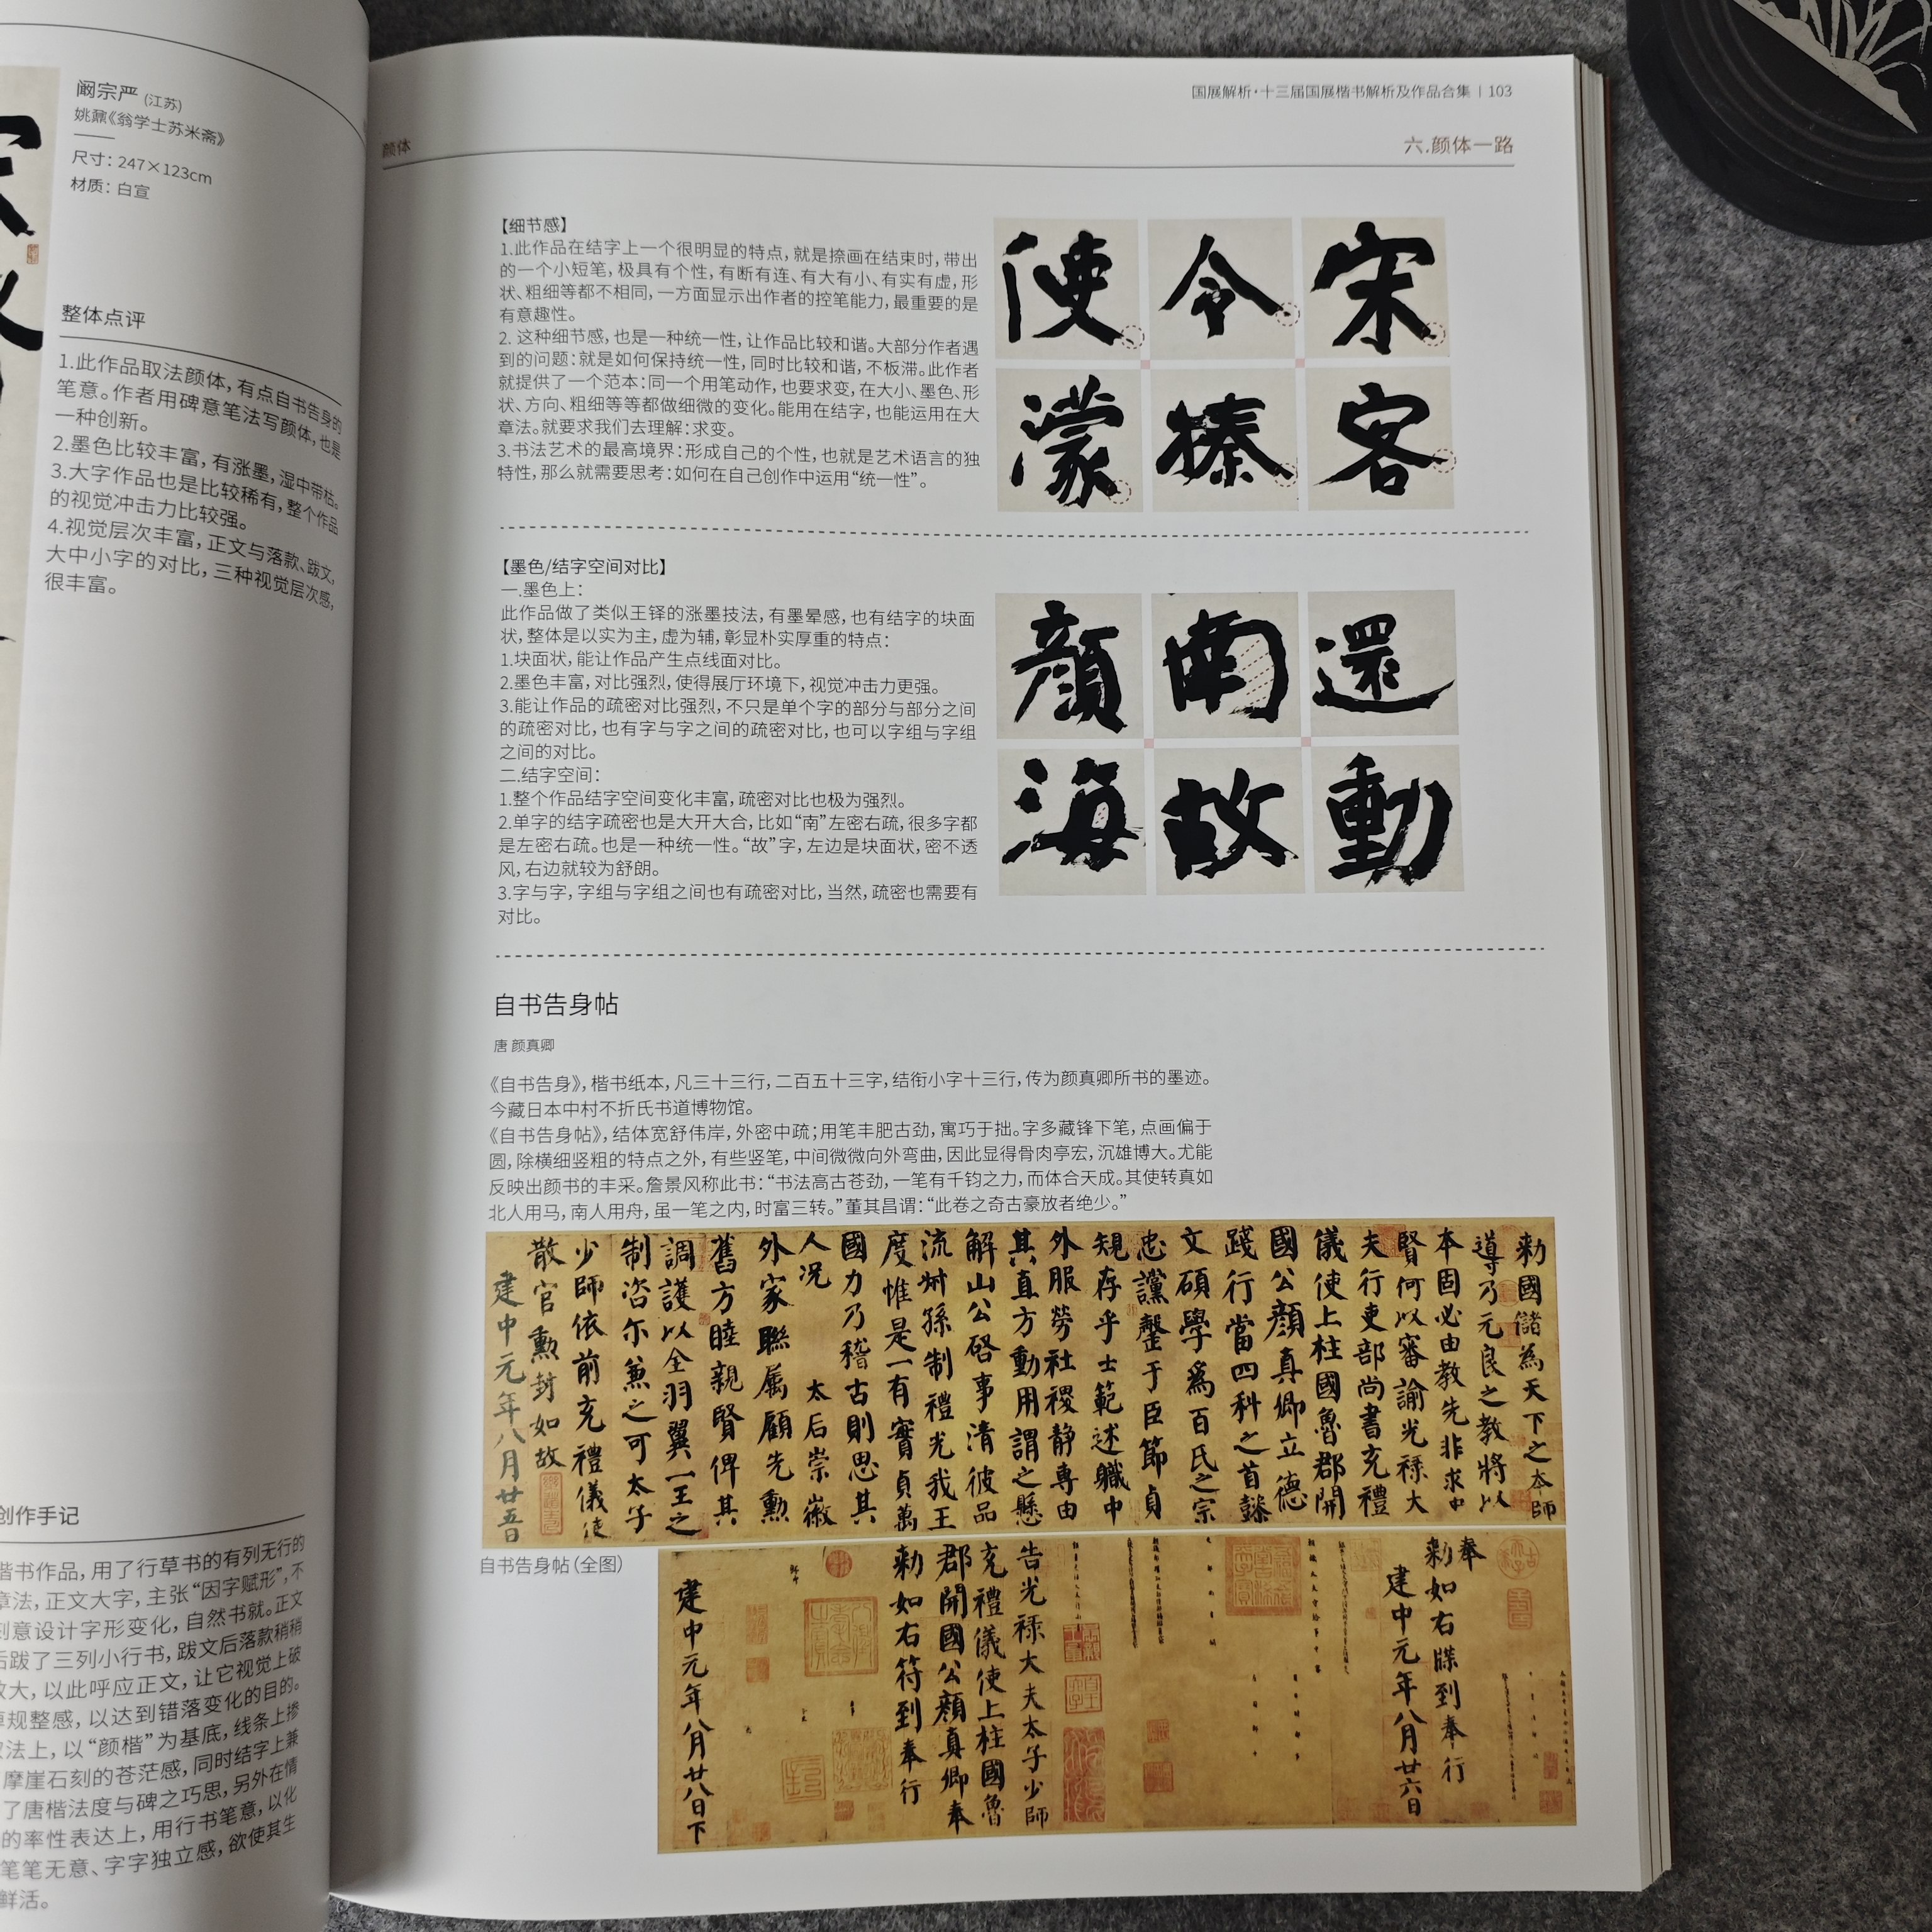 阚宗严 (江苏)
姚鼐《翁学士苏米斋》
尺寸: 247×123cm
材质: 白宣
整体点评
1.此作品取法颜体，有点自书告身的
笔意。作者用碑意笔法写颜体，也是
一种创新。
2.墨色比较丰富，有涨墨，湿中带枯。
3.大字作品也是比较稀有，整个作品
的视觉冲击力比较强。
4.视觉层次丰富，正文与落款、跋文，
大中小字的对比，三种视觉层次感，
很丰富。
创作手记
楷书作品，用了行草书的有列无行的
章法，正文大字，主张“因字赋形”，不
刻意设计字形变化，自然书就。正文
后跋了三列小行书，跋文后落款稍稍
放大，以此呼应正文，让它视觉上破
规整感，以达到错落变化的目的。
法上，以“颜楷”为基底，线条上掺
摩崖石刻的苍茫感，同时结字上兼
了唐楷法度与碑之巧思，另外在情
的率性表达上，用行书笔意，以化
笔笔无意、字字独立感，欲使其生
鲜活。
国展解析·十三届国展楷书解析及作品合集 | 103
颜体
六.颜体一路
【细节感】
1.此作品在结字上一个很明显的特点，就是捺画在结束时，带出
的一个小短笔，极具有个性，有断有连、有大有小、有实有虚，形
状、粗细等都不相同，一方面显示出作者的控笔能力，最重要的是
有意趣性。
2. 这种细节感，也是一种统一性，让作品比较和谐。大部分作者遇
到的问题：就是如何保持统一性，同时比较和谐，不板滞。此作者
就提供了一个范本：同一个用笔动作，也要求变，在大小、墨色、形
状、方向、粗细等等都做细微的变化。能用在结字，也能运用在大
章法。就要求我们去理解：求变。
3.书法艺术的最高境界：形成自己的个性，也就是艺术语言的独
特性，那么就需要思考：如何在自己创作中运用“统一性”。
使 令 宋
濛 搸 客
【墨色/结字空间对比】
一.墨色上：
此作品做了类似王铎的涨墨技法，有墨晕感，也有结字的块面
状，整体是以实为主，虚为辅，彰显朴实厚重的特点：
1.块面状，能让作品产生点线面对比。
2.墨色丰富，对比强烈，使得展厅环境下，视觉冲击力更强。
3.能让作品的疏密对比强烈，不只是单个字的部分与部分之间
的疏密对比，也有字与字之间的疏密对比，也可以字组与字组
之间的对比。
二.结字空间：
1.整个作品结字空间变化丰富，疏密对比也极为强烈。
2.单字的结字疏密也是大开大合，比如“南”左密右疏，很多字都
是左密右疏。也是一种统一性。“故”字，左边是块面状，密不透
风，右边就较为舒朗。
3.字与字，字组与字组之间也有疏密对比，当然，疏密也需要有
对比。
顔 南 還
海 故 動
自书告身帖
唐 颜真卿
《自书告身》，楷书纸本，凡三十三行，二百五十三字，结衔小字十三行，传为颜真卿所书的墨迹。
今藏日本中村不折氏书道博物馆。
《自书告身帖》，结体宽舒伟岸，外密中疏；用笔丰肥古劲，寓巧于拙。字多藏锋下笔，点画偏于
圆，除横细竖粗的特点之外，有些竖笔，中间微微向外弯曲，因此显得骨肉亭宏，沉雄博大。尤能
反映出颜书的丰采。詹景风称此书：“书法高古苍劲，一笔有千钧之力，而体合天成。其使转真如
北人用马，南人用舟，虽一笔之内，时富三转。”董其昌谓：“此卷之奇古豪放者绝少。”
勑國儲為天下之本師
導乃元良之教將以
本固必由教先非求中
賢何以審諭光禄大
夫行吏部尚書充禮
儀使上柱國魯郡開
國公顔真卿立德
踐行當四科之首懿
文碩學為百氏之宗
忠讜罄于臣節貞
規存乎士範述職中
外服勞社稷静專由
其直方動用謂之懸
解山公啓事清彼品
流叔孫制禮光我王
度惟是一有實貞萬
國力乃稽古則思其
人况 太后崇徽
外家聯屬顧先勲
舊方睦親賢俾其
調護以全羽翼一王之
制咨尔兼之可太子
少師依前充禮儀使
散官勲封如故
建中元年八月廿五日
自书告身帖（全图）
奉
勑如右牒到奉行
建中元年八月廿六日
告光禄大夫太子少師
充禮儀使上柱國魯
郡開國公顔真卿奉
勑如右符到奉行
建中元年八月廿八日下